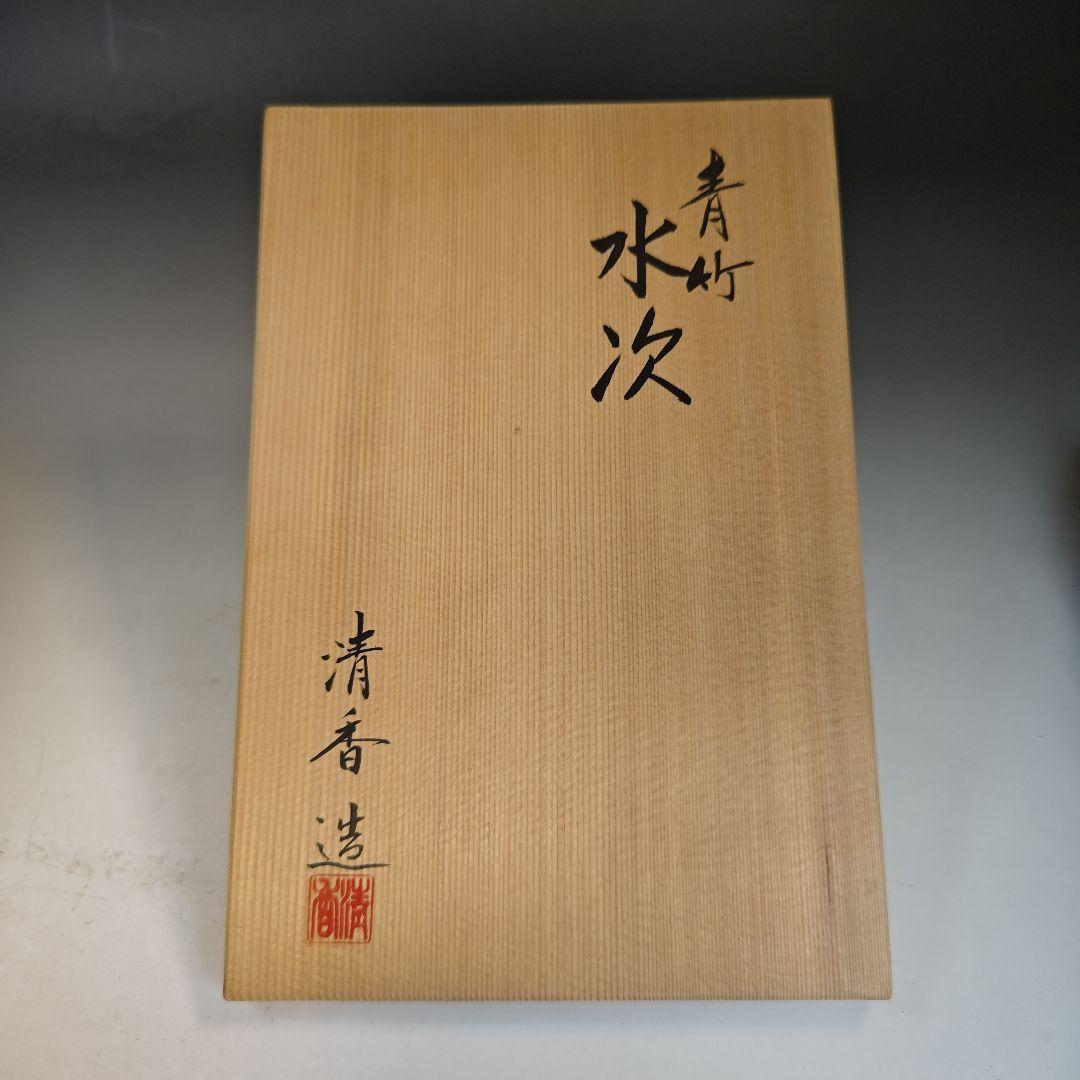 青竹
水次
清香造
清香